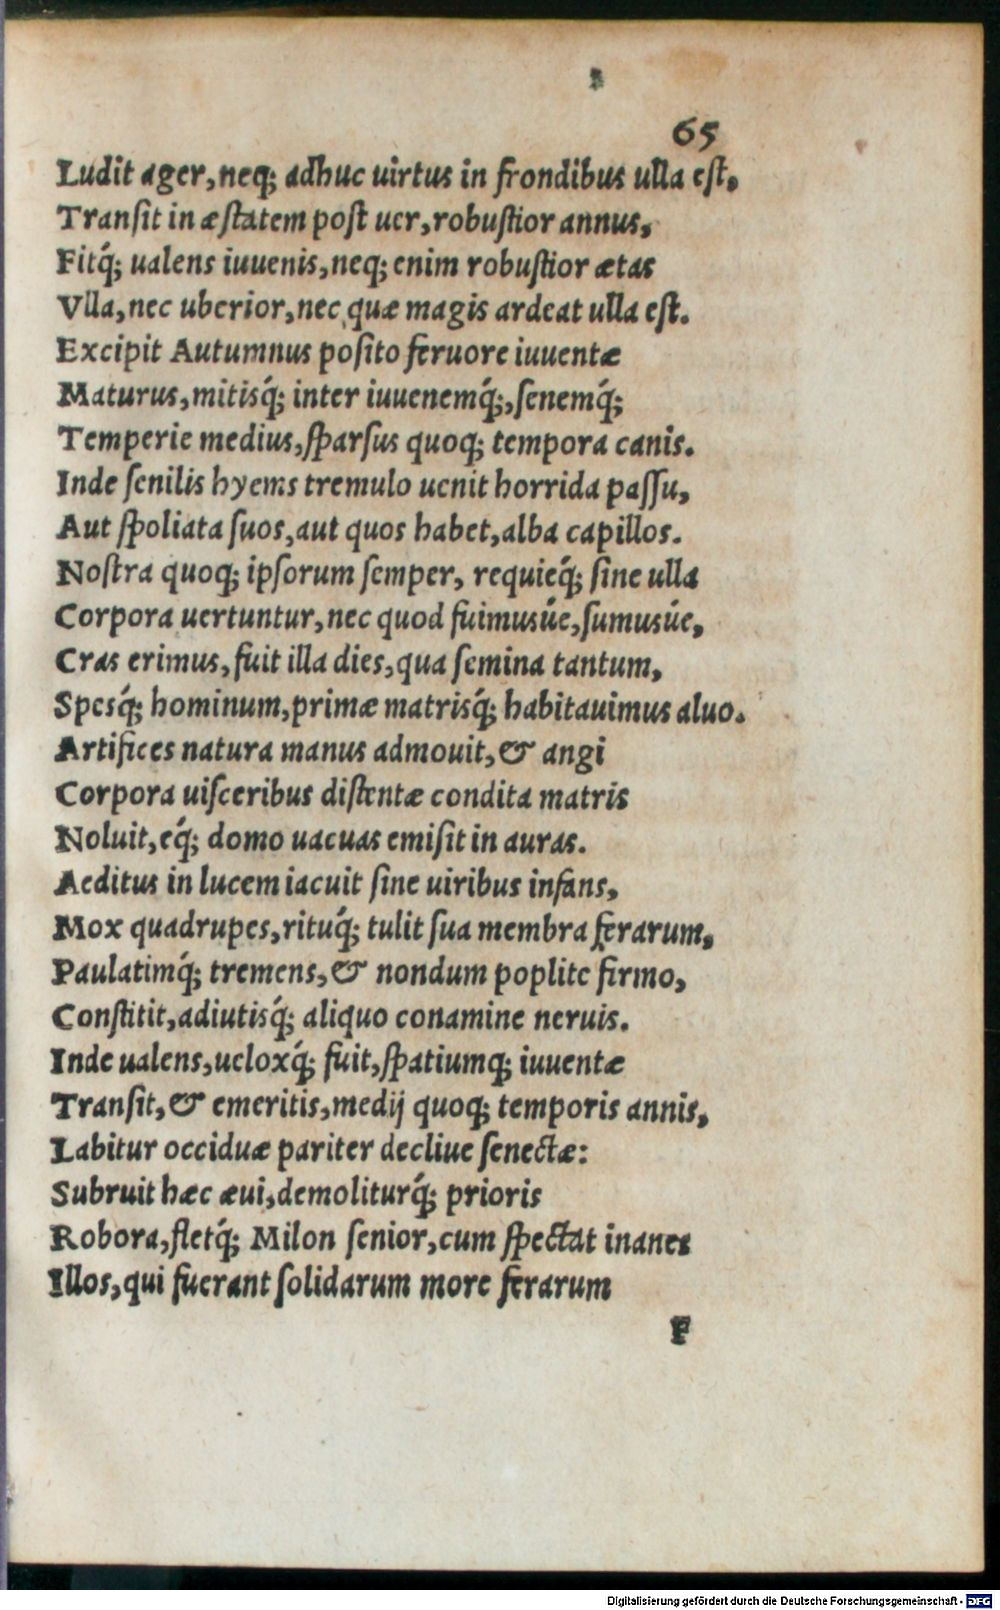 65
Ludit ager, neq; adhuc uirtus in frondibus ulla est.
Transit in æstatem post uer, robustior annus,
Fitq́; ualens iuuenis, neq; enim robustior ætas
Vlla, nec uberior, nec quæ magis ardeat ulla est.
Excipit Autumnus posito feruore iuuentæ
Maturus, mitisq́; inter iuuenemq́;, senemq́;
Temperie medius, sparsus quoq; tempora canis.
Inde senilis hyems tremulo uenit horrida passu,
Aut spoliata suos, aut quos habet, alba capillos.
Nostra quoq; ipsorum semper, requieq́; sine ulla
Corpora uertuntur, nec quod fuimusúe, sumusúe,
Cras erimus, fuit illa dies, qua semina tantum,
Spesq́; hominum, primæ matrisq́; habitauimus aluo.
Artifices natura manus admouit, & angi
Corpora uisceribus distentæ condita matris
Noluit, eq́; domo uacuas emisit in auras.
Aeditus in lucem iacuit sine uiribus infans,
Mox quadrupes, rituq́; tulit sua membra ferarum,
Paulatimq́; tremens, & nondum poplite firmo,
Constitit, adiutisq́; aliquo conamine neruis.
Inde ualens, ueloxq́; fuit, spatiumq; iuuentæ
Transit, & emeritis, medij quoq; temporis annis,
Labitur occiduæ pariter decliue senectæ:
Subruit hæc æui, demoliturq́; prioris
Robora, fletq́; Milon senior, cum spectat inanes
Illos, qui fuerant solidarum more ferarum
F
Digitalisierung gefördert durch die Deutsche Forschungsgemeinschaft - DFG